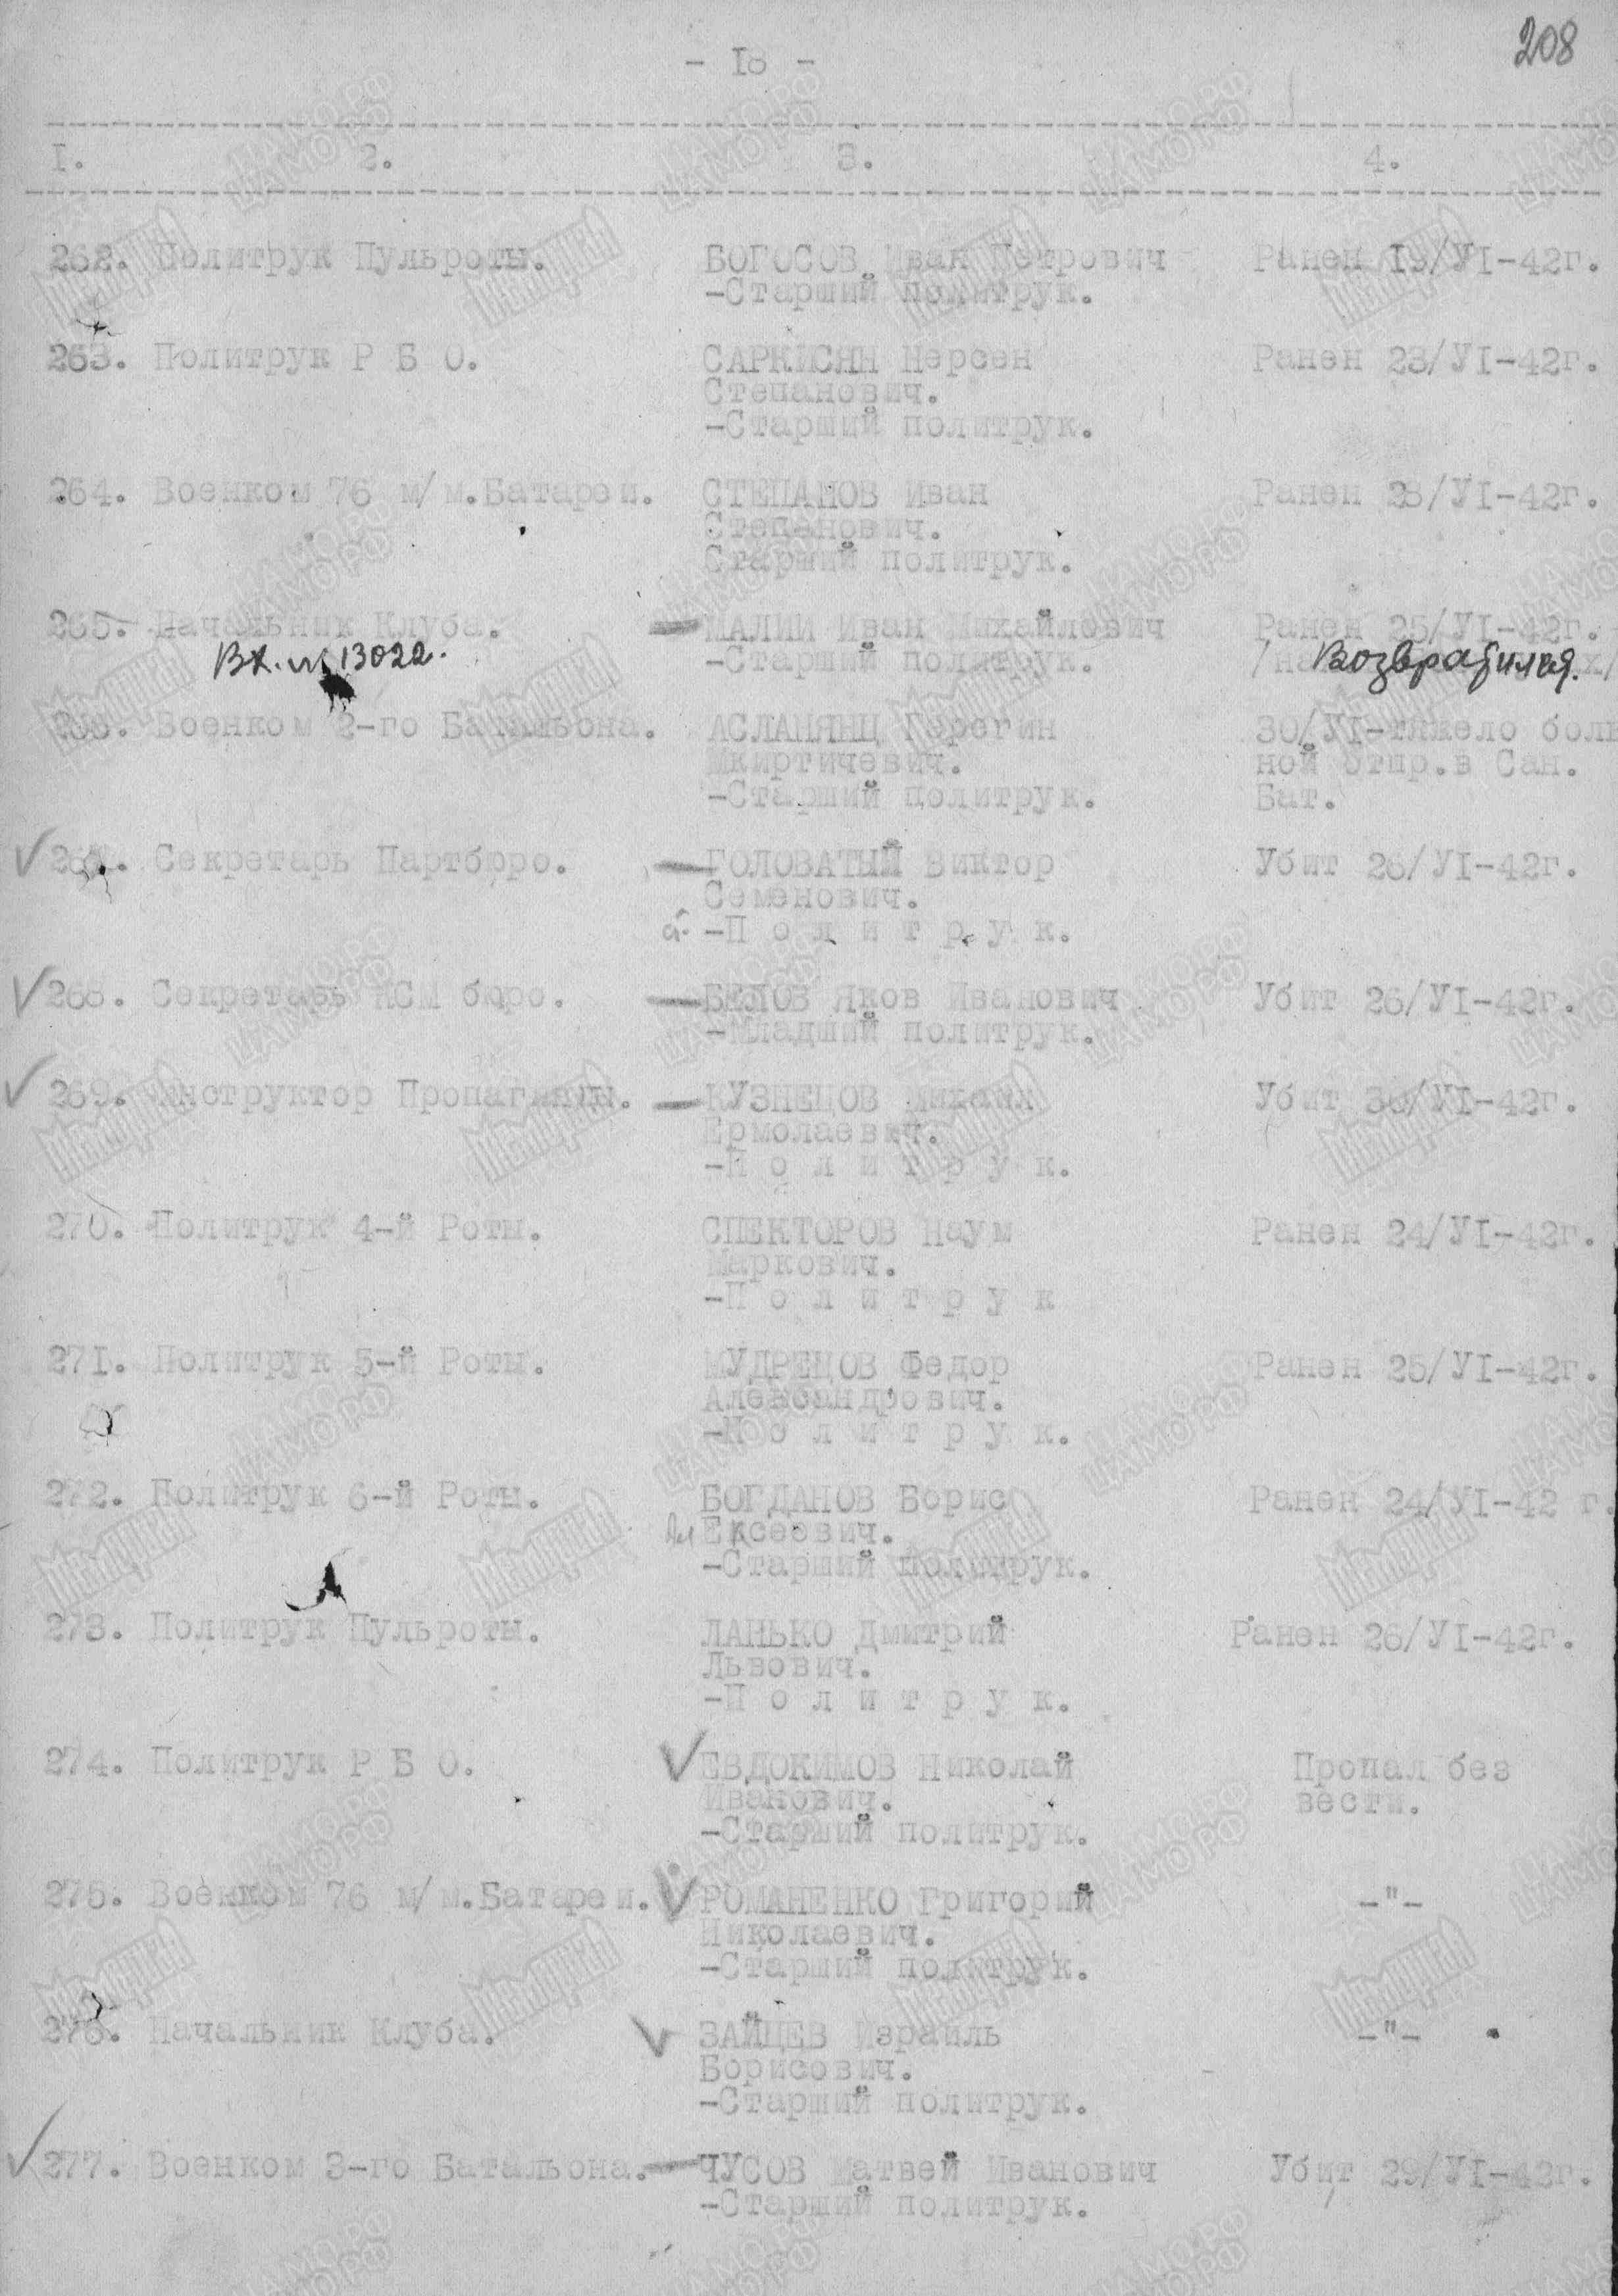 208
- 18 -
I. 2. 3. 4.
262. Политрук Пульроты. БОГОСОВ Иван Петрович Ранен 19/УІ-42г.
-Старший политрук.
263. Политрук Р Б О. САРКИСЯН Нерсен Ранен 23/УІ-42г.
Степанович.
-Старший политрук.
264. Военком 76 м/м.Батареи. СТЕПАНОВ Иван Ранен 23/УІ-42г.
Степанович.
Старший политрук.
265. Начальник Клуба. МАЛИЙ Иван Михайлович Ранен 25/УІ-42г.
Вх. № 13022. -Старший политрук. Возвратился.
266. Военком 2-го Батальона. АСЛАНЯНЦ Герегин 30/УІ-тяжело боль
Мкиртичевич. ной отпр.в Сан.
-Старший политрук. Бат.
267. Секретарь Партбюро. ГОЛОВАТЫЙ Виктор Убит 26/УІ-42г.
Семенович.
-П о л и т р у к.
268. Секретарь КСМ бюро. БЕЛОВ Яков Иванович Убит 26/УІ-42г.
-Младший политрук.
269. Инструктор Пропаганды. КУЗНЕЦОВ Михаил Убит 30/УІ-42г.
Ермолаевич.
-П о л и т р у к.
270. Политрук 4-й Роты. СПЕКТОРОВ Наум Ранен 24/УІ-42г.
Маркович.
-П о л и т р у к
271. Политрук 5-й Роты. МУДРЕЦОВ Федор Ранен 25/УІ-42г.
Александрович.
-П о л и т р у к.
272. Политрук 6-й Роты. БОГДАНОВ Борис Ранен 24/УІ-42 г.
Ексеевич.
-Старший политрук.
273. Политрук Пульроты. ЛАНЬКО Дмитрий Ранен 26/УІ-42г.
Львович.
-П о л и т р у к.
274. Политрук Р Б О. ЕВДОКИМОВ Николай Пропал без
Иванович. вести.
-Старший политрук.
275. Военком 76 м/м.Батареи. РОМАНЕНКО Григорий -"-
Николаевич.
-Старший политрук.
276. Начальник Клуба. ЗАЙЦЕВ Израиль -"-
Борисович.
-Старший политрук.
277. Военком 3-го Батальона. ЧУСОВ Матвей Иванович Убит 29/УІ-42г.
-Старший политрук.